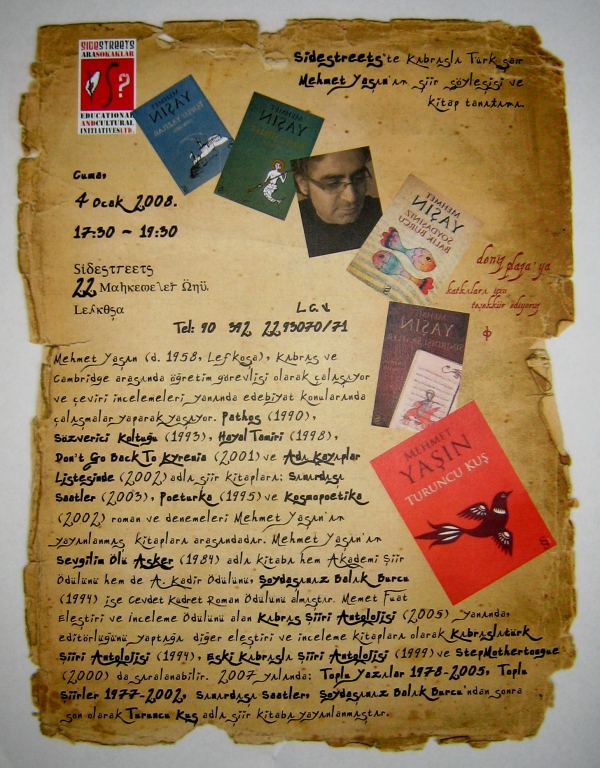 SIDESTREETS
ARASOKAKLAR
S?
EDUCATIONAL
ANDCULTURAL
INITIATIVESLTD.
Sidestreets'te Kıbrıslı Türk şair
Mehmet Yaşın'ın şiir söyleşisi ve
kitap tanıtımı.
MEHMET
YAŞIN
MEHMET
YAŞIN
Cuma,
4 Ocak 2008.
17:30 ~ 19:30
MEHMET
YAŞIN
SOYDAŞINIZ
BALIK BURCU
deniz plaza'ya
katkıları için
teşekkür ediyoruz
Sidestreets
22 Mahkemeler Önü,
Lefkoşa
L.C.V.
Tel: 90 392 2293070/71
MEHMET
YAŞIN
SINIRDIŞI SAATLER
Mehmet Yaşın (d. 1958, Lefkoşa), Kıbrıs ve
Cambridge arasında öğretim görevlisi olarak çalışıyor
ve çeviri incelemeleri yanında edebiyat konularında
çalışmalar yaparak yaşıyor. Pathos (1990),
Sözverici Koltuğu (1993), Hayal Tamiri (1998),
Don't Go Back To Kyrenia (2001) ve Adı Kayıplar
Listesinde (2002) adlı şiir kitapları; Sınırdışı
Saatler (2003), Poeturka (1995) ve Kosmopoetika
(2002) roman ve denemeleri Mehmet Yaşın'ın
yayınlanmış kitapları arasındadır. Mehmet Yaşın'ın
Sevgilim Ölü Asker (1984) adlı kitabı hem Akademi Şiir
Ödülünü hem de A. Kadir Ödülünü, Soydaşınız Balık Burcu
(1994) ise Cevdet Kudret Roman Ödülünü almıştır. Memet Fuat
Eleştiri ve İnceleme Ödülünü alan Kıbrıs Şiiri Antolojisi (2005) yanında,
editörlüğünü yaptığı diğer eleştiri ve inceleme kitapları olarak Kıbrıslıtürk
Şiiri Antolojisi (1994), Eski Kıbrıslı Şiiri Antolojisi (1999) ve StepMothertongue
(2000) da sıralanabilir. 2007 yılında; Toplu Yazılar 1978-2005, Toplu
Şiirler 1977-2002, Sınırdışı Saatler, Soydaşınız Balık Burcu'ndan sonra
son olarak Turuncu Kuş adlı şiir kitabı yayınlanmıştır.
MEHMET
YAŞIN
TURUNCU KUŞ